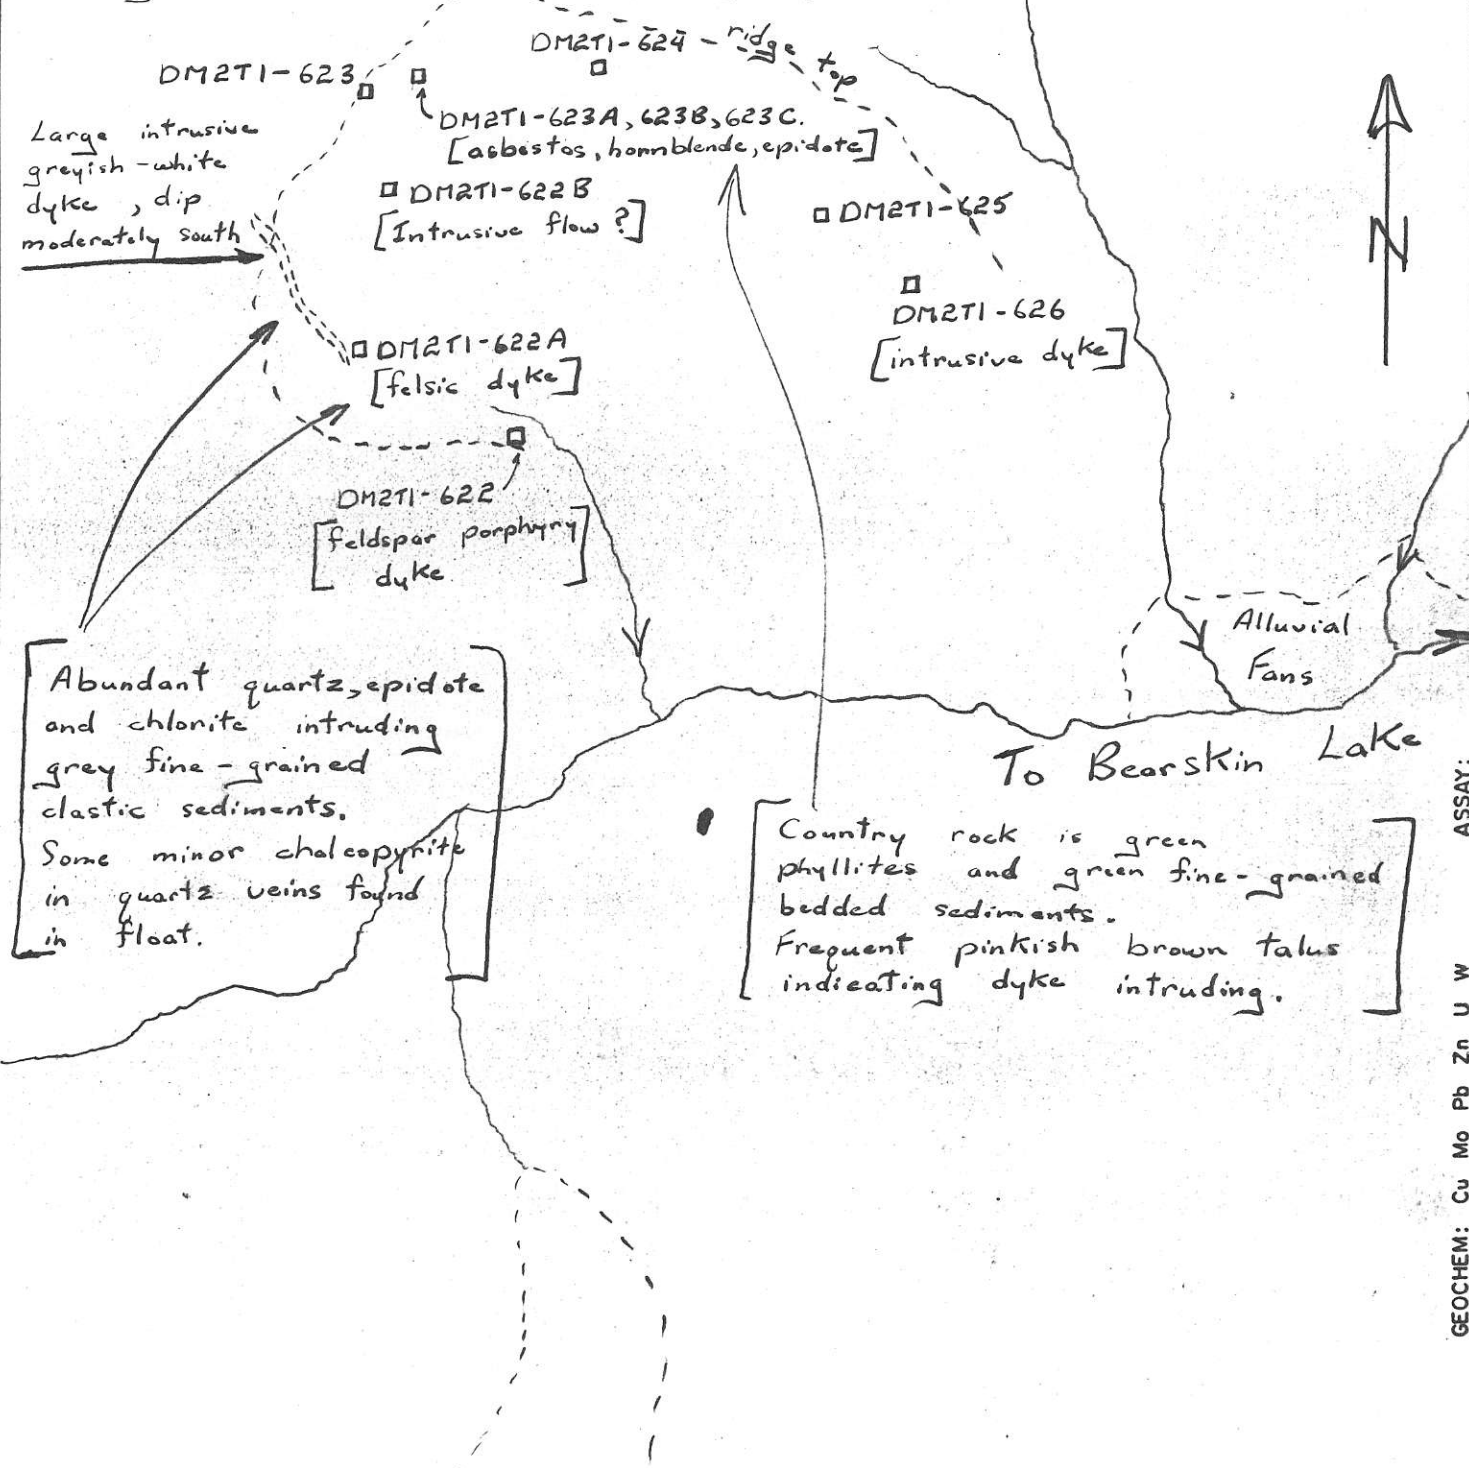 DM2T1-624 - ridge top
DM2T1-623
DM2T1-623A, 623B, 623C.
[asbestos, hornblende, epidote]
Large intrusive
greyish-white
dyke, dip
moderately south
DM2T1-622B
[Intrusive flow?]
DM2T1-625
N
DM2T1-626
[intrusive dyke]
DM2T1-622A
[felsic dyke]
DM2T1-622
[feldspar porphyry
dyke]
Alluvial
Fans
To Bearskin Lake
[Abundant quartz, epidote
and chlorite intruding
grey fine-grained
clastic sediments.
Some minor chalcopyrite
in quartz veins found
in float.]
[Country rock is green
phyllites and green fine-grained
bedded sediments.
Frequent pinkish brown talus
indicating dyke intruding.]
GEOCHEM: Cu Mo Pb Zn U W ASSAY: